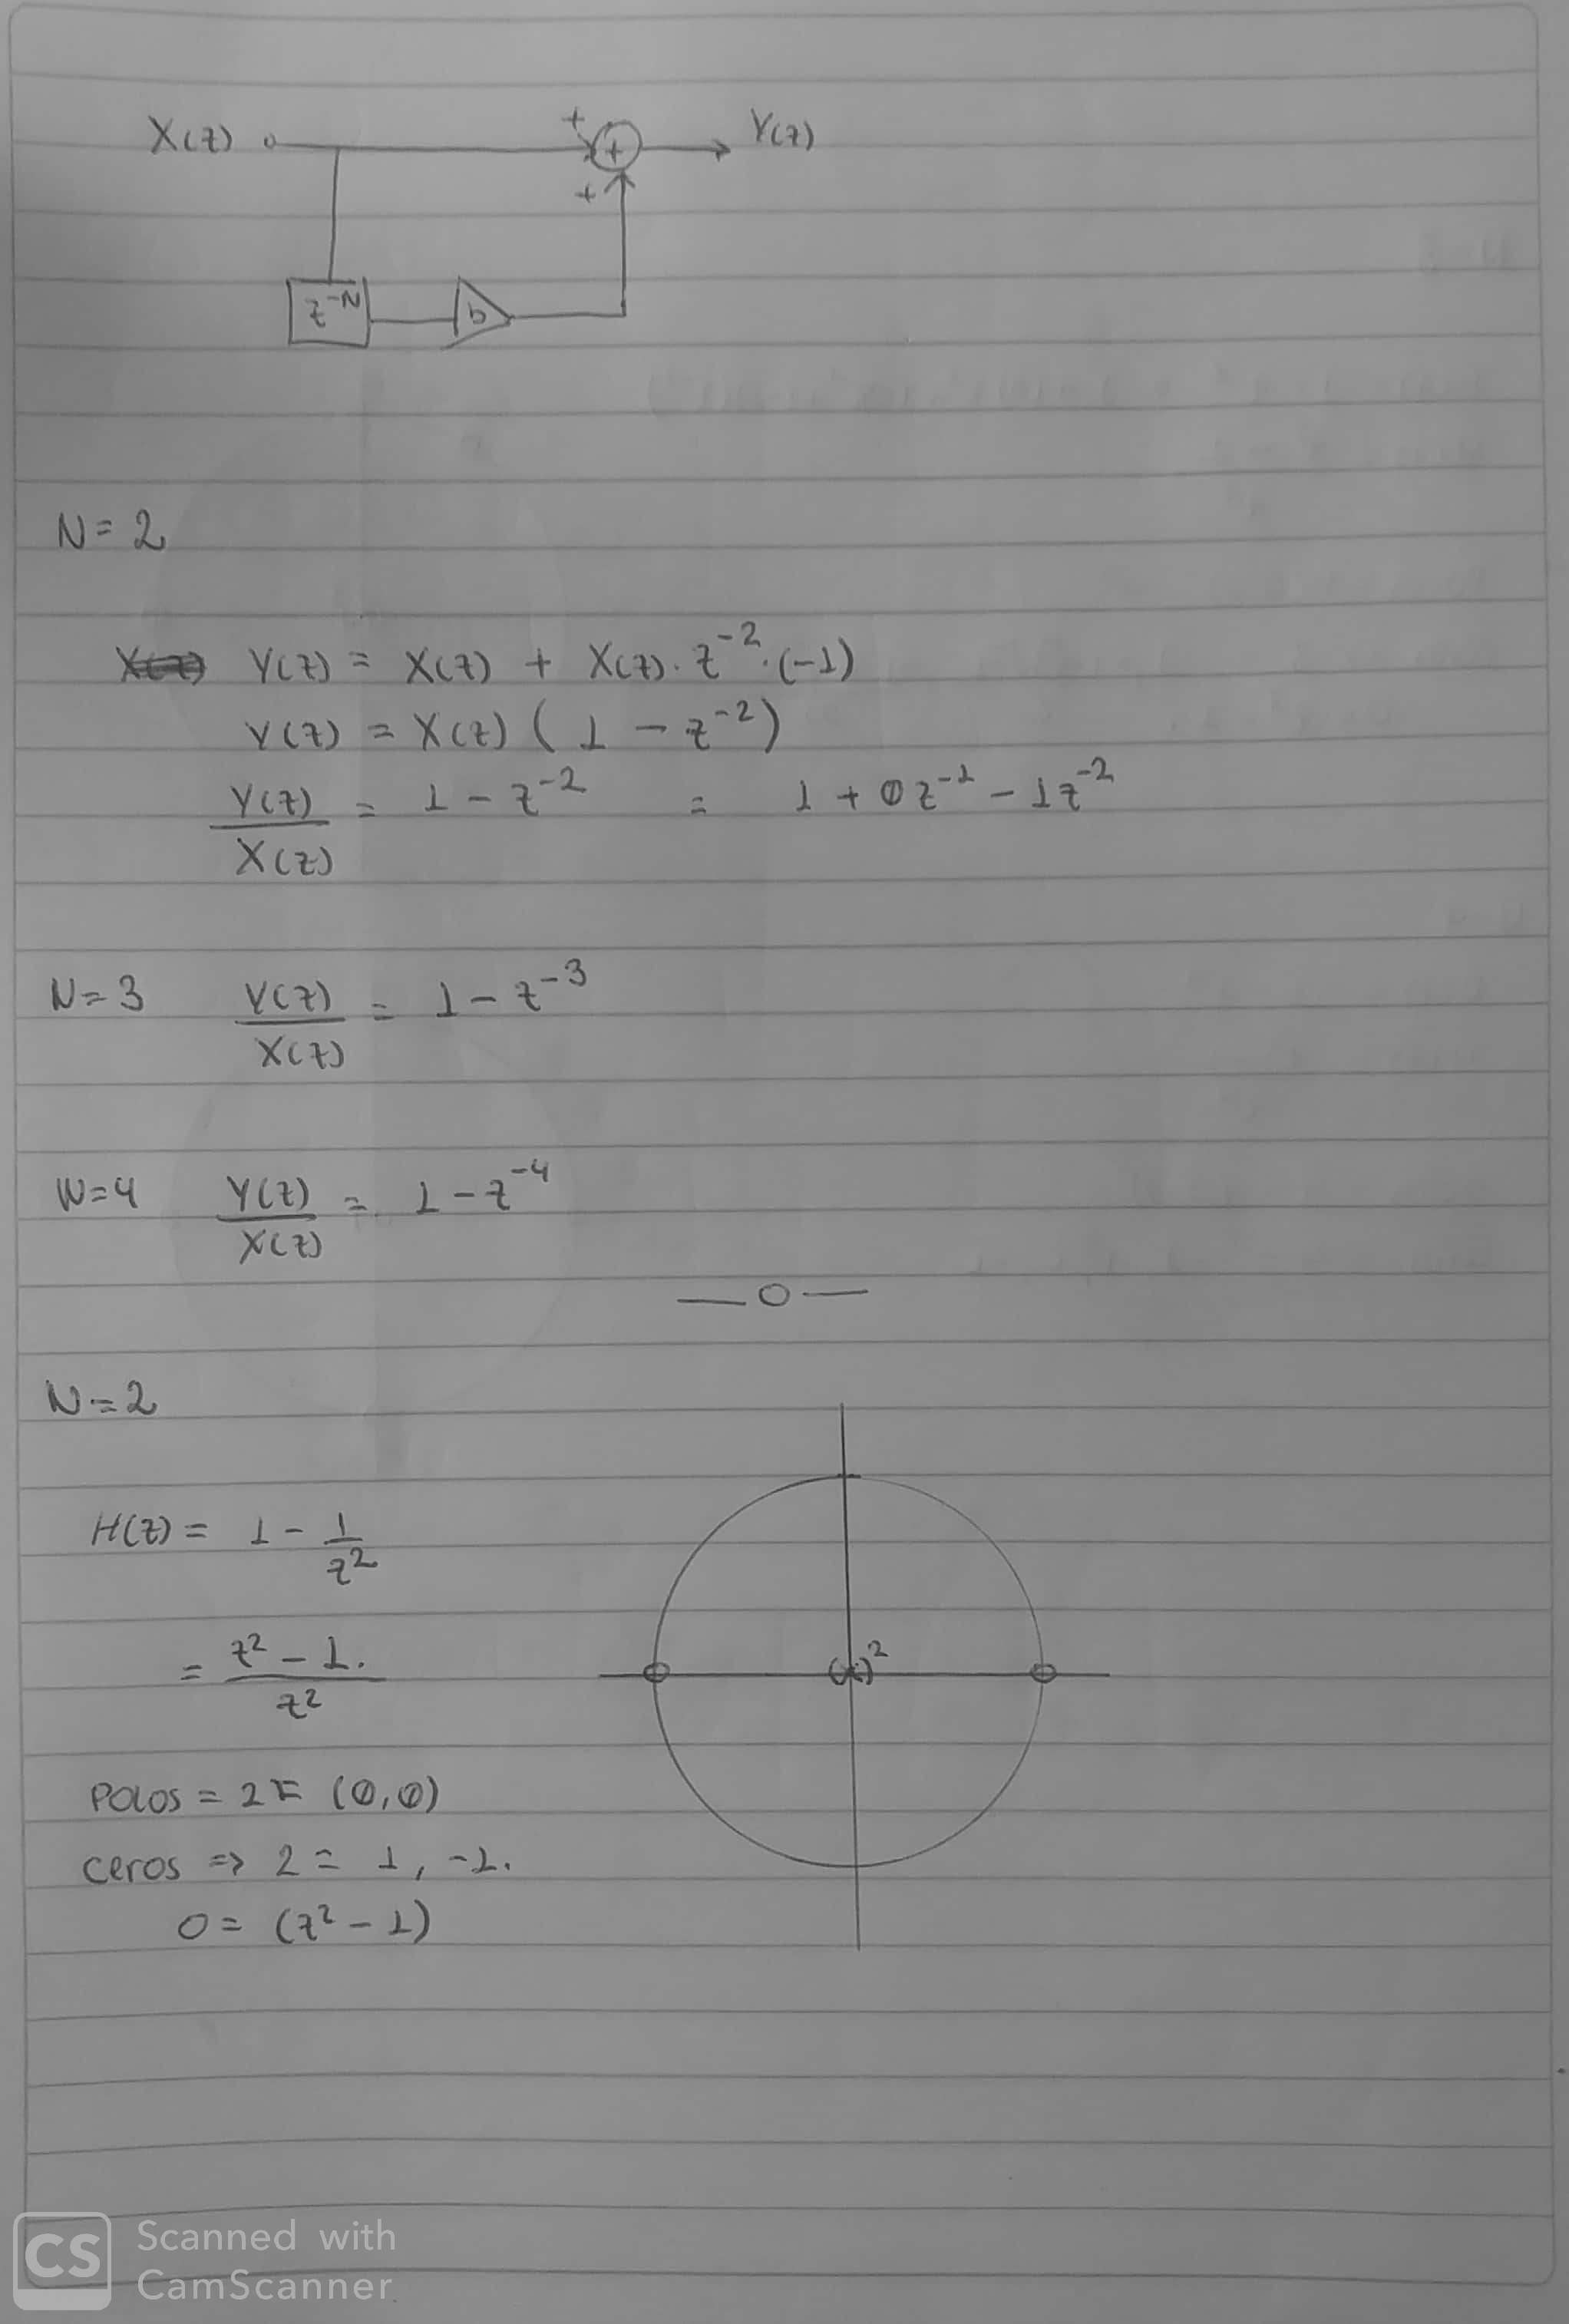 X(z) Y(z)
+
+
+
z^-N b
N = 2
Y(z) = X(z) + X(z) . z^-2 . (-1)
Y(z) = X(z) ( 1 - z^-2 )
Y(z) / X(z) = 1 - z^-2 = 1 + 0z^-1 - 1z^-2
N = 3 Y(z) / X(z) = 1 - z^-3
N = 4 Y(z) / X(z) = 1 - z^-4
— 0 —
N = 2
H(z) = 1 - 1 / z^2
= z^2 - 1. / z^2
(x)^2
Polos = 2 = (0,0)
ceros => 2 = 1, -1.
0 = (z^2 - 1)
CS Scanned with
CamScanner